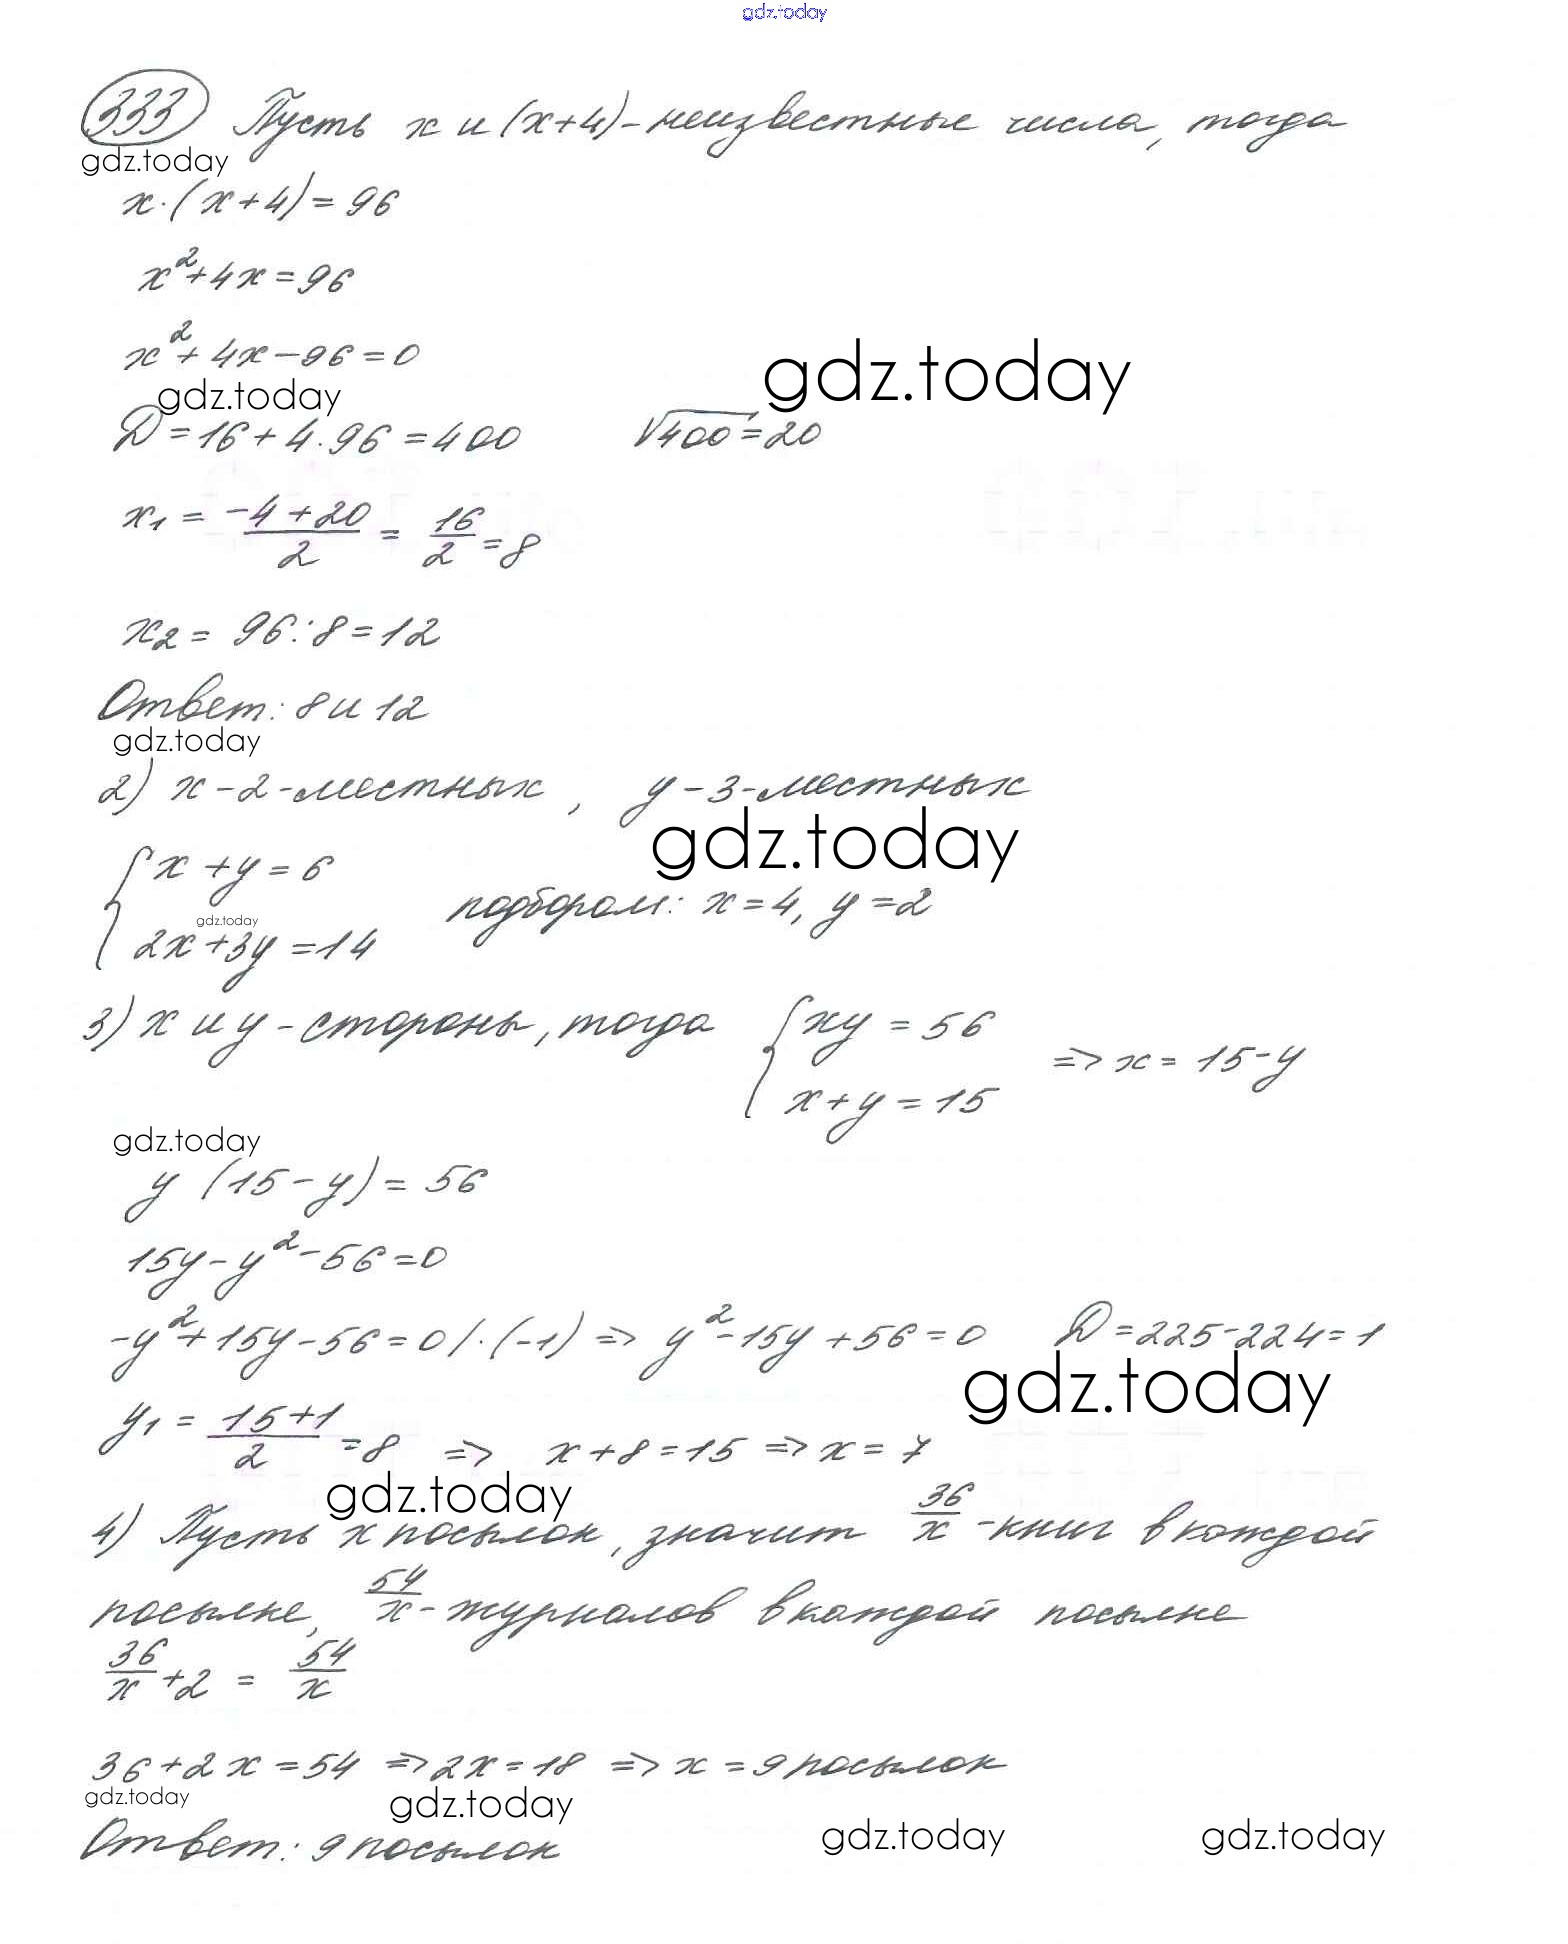 gdz.today
333 Пусть x и (x+4) - неизвестные числа, тогда
gdz.today
x·(x+4)=96
x²+4x=96
x²+4x-96=0
gdz.today
gdz.today
D=16+4·96=400 √400=20
x₁ = (-4+20)/2 = 16/2 = 8
x₂ = 96:8=12
Ответ: 8 и 12
gdz.today
2) x-2-местных, y-3-местных
gdz.today
{ x+y=6
gdz.today
2x+3y=14 подбором: x=4, y=2
3) x и y - стороны, тогда { xy=56
x+y=15 => x=15-y
gdz.today
y(15-y)=56
15y-y²-56=0
-y²+15y-56=0 |·(-1) => y²-15y+56=0 D=225-224=1
gdz.today
y₁ = (15+1)/2 = 8 => x+8=15 => x=7
gdz.today
4) Пусть x посылок, значит 36/x - книг в каждой
посылке, 54/x - журналов в каждой посылке
36/x + 2 = 54/x
36+2x=54 => 2x=18 => x=9 посылок
gdz.today
gdz.today
Ответ: 9 посылок
gdz.today
gdz.today